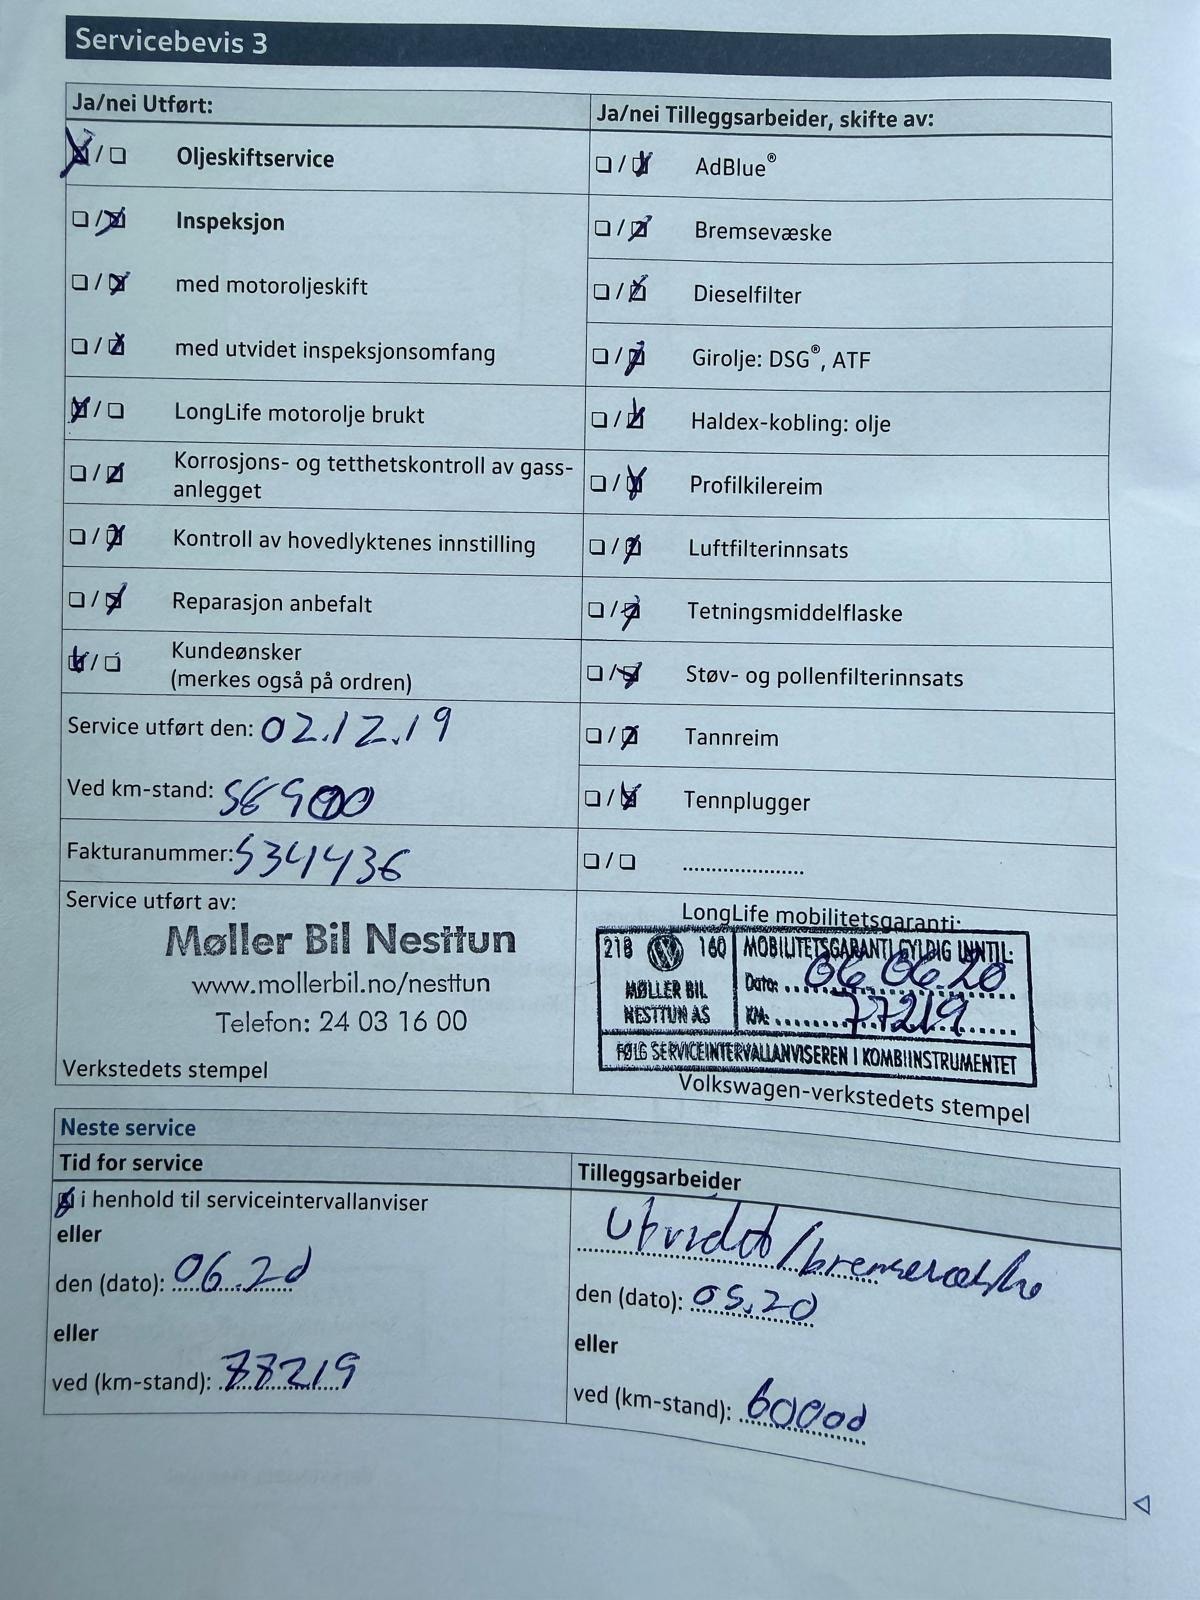 Servicebevis 3
Ja/nei Utført:
Oljeskiftservice
Inspeksjon
med motoroljeskift
med utvidet inspeksjonsomfang
LongLife motorolje brukt
Korrosjons- og tetthetskontroll av gass-
anlegget
Kontroll av hovedlyktenes innstilling
Reparasjon anbefalt
Kundeønsker
(merkes også på ordren)
Service utført den: 02.12.19
Ved km-stand:
Fakturanummer: 534436
Service utført av:
Møller Bil Nesttun
www.mollerbil.no/nesttun
Telefon: 24 03 16 00
Verkstedets stempel
Ja/nei Tilleggsarbeider, skifte av:
AdBlue®
Bremsevæske
Dieselfilter
Girolje: DSG®, ATF
Haldex-kobling: olje
Profilkilereim
Luftfilterinnsats
Tetningsmiddelflaske
Støv- og pollenfilterinnsats
Tannreim
Tennplugger
LongLife mobilitetsgaranti:
218 160
MØLLER BIL
NESTTUN AS
MOBILITETSGARANTI GYLDIG INNTIL:
Dato: 06.06.20
KM: 77219
FØLG SERVICEINTERVALLANVISEREN I KOMBIINSTRUMENTET
Volkswagen-verkstedets stempel
Neste service
Tid for service
i henhold til serviceintervallanviser
eller
den (dato): 06.20
eller
ved (km-stand): 77219
Tilleggsarbeider
Utvidet/bremsevæske
den (dato): 05.20
eller
ved (km-stand): 60000